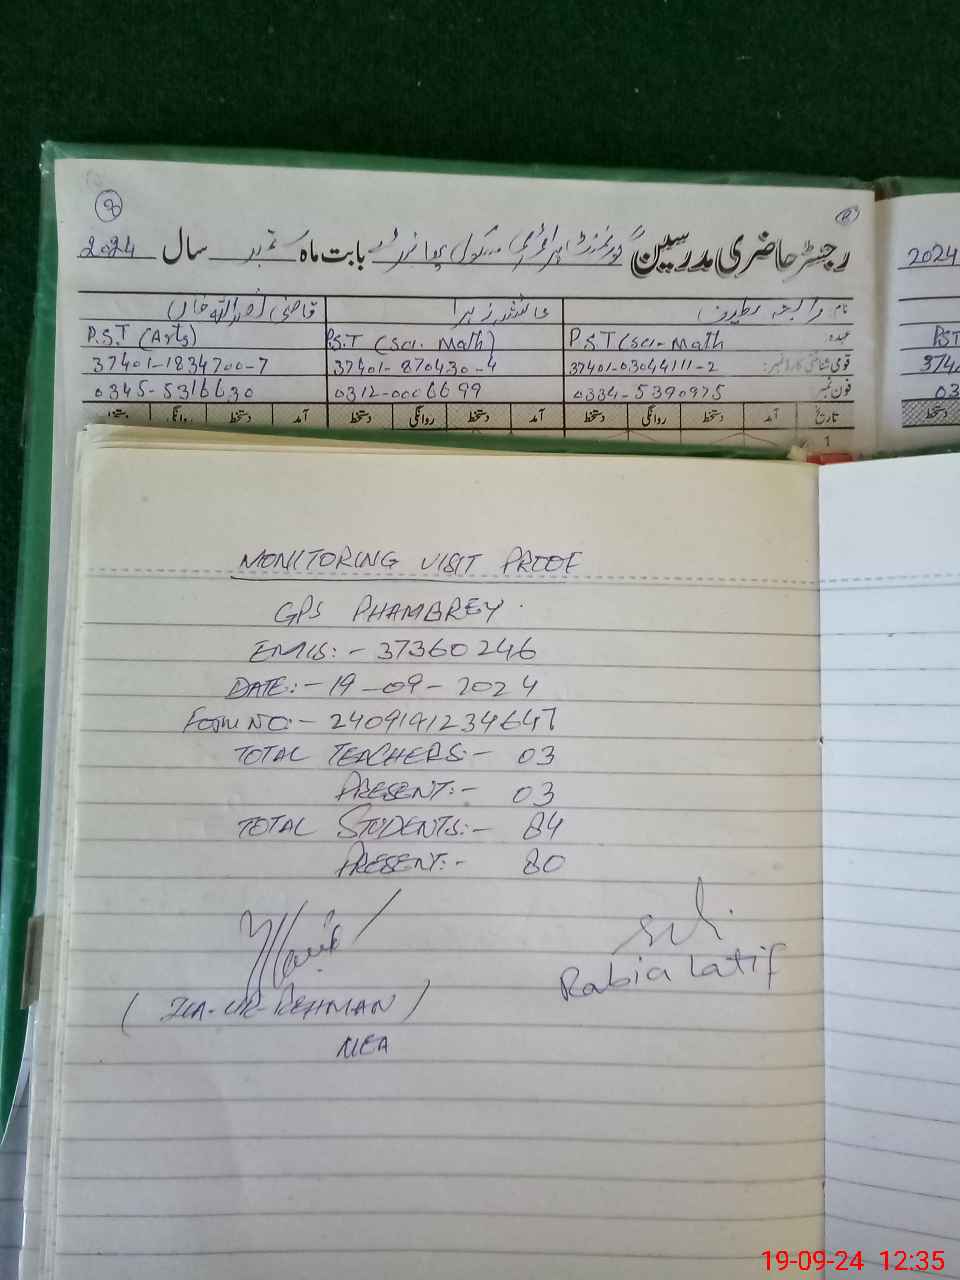 رجسٹر حاضری مدرسین گورنمنٹ پرائمری سکول بابت ماہ ستمبر سال 2024
2024
نام: رابعہ لطیف عائشہ زہرا قاضی نصراللہ خان
عہدہ: P.S.T (Sci-Math P.S.T (Sci. Math) P.S.T (Arts)
PST
قومی شناختی کارڈ نمبر: 37401-0304411-2 37401-870430-4 37401-1834700-7
فون نمبر 0334-5390975 0312-0006699 0345-5316630
03
تاریخ آمد دستخط روانگی دستخط آمد دستخط روانگی دستخط آمد دستخط روانگی دستخط
1
MONITORING VISIT PROOF
GPS PHAMBREY.
EMIS:- 37360246
DATE:- 19-09-2024
Form NO:- 2409191234647
TOTAL TEACHERS:- 03
PRESENT:- 03
TOTAL STUDENTS:- 84
PRESENT:- 80
Rabia Latif
(ZIA-UR-REHMAN)
MEA
19-09-24 12:35